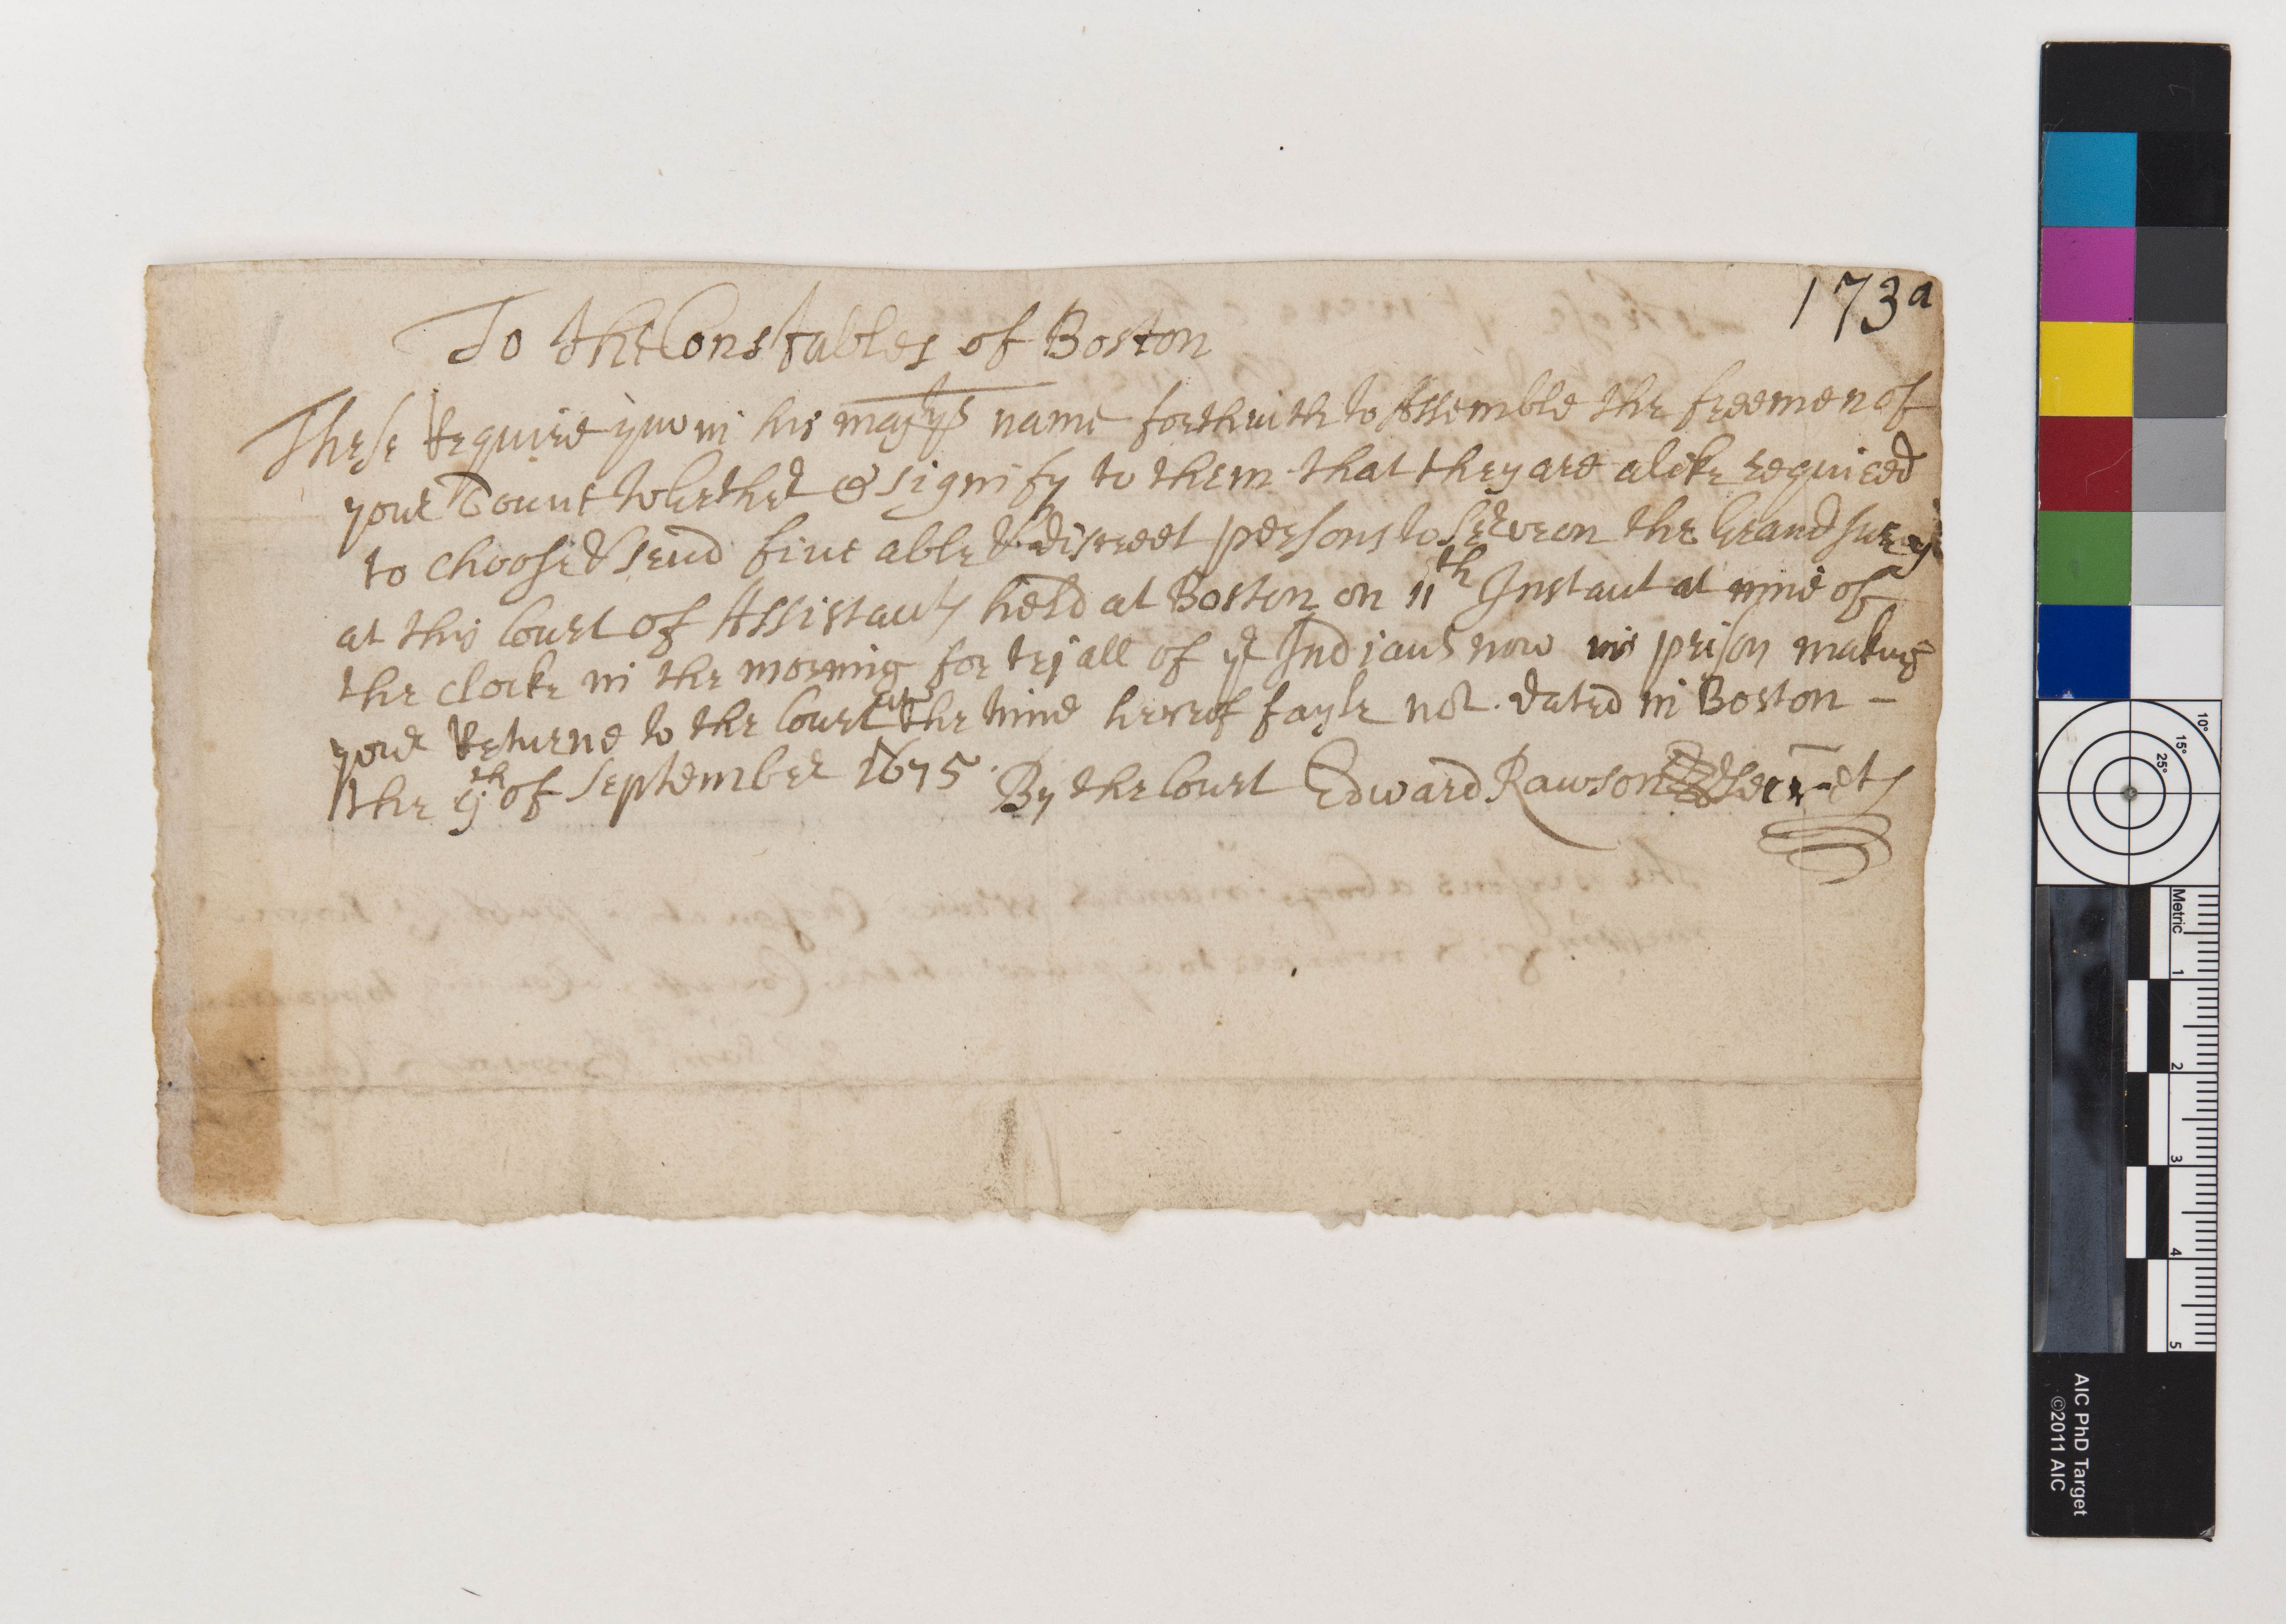 173a
To the Constables of Boston
These Require yow in his majtys name forthwith to Assemble the freemen of
your Toune together & signify to them that they are alike required
to choose & send five able & discreet persons to serve on the Grand Jury
at this Court of Assistants held at Boston on 11th Instant at nine of
the clocke in the morning for trjall of ye Indians now in prison making
your Returne to the Court at the time hereof fayle not. dated in Boston -
the 9th of September 1675. By the Court Edward Rawson Secret
10°
15°
25°
Metric
1
2
3
4
5
AIC PhD Target
©2011 AIC